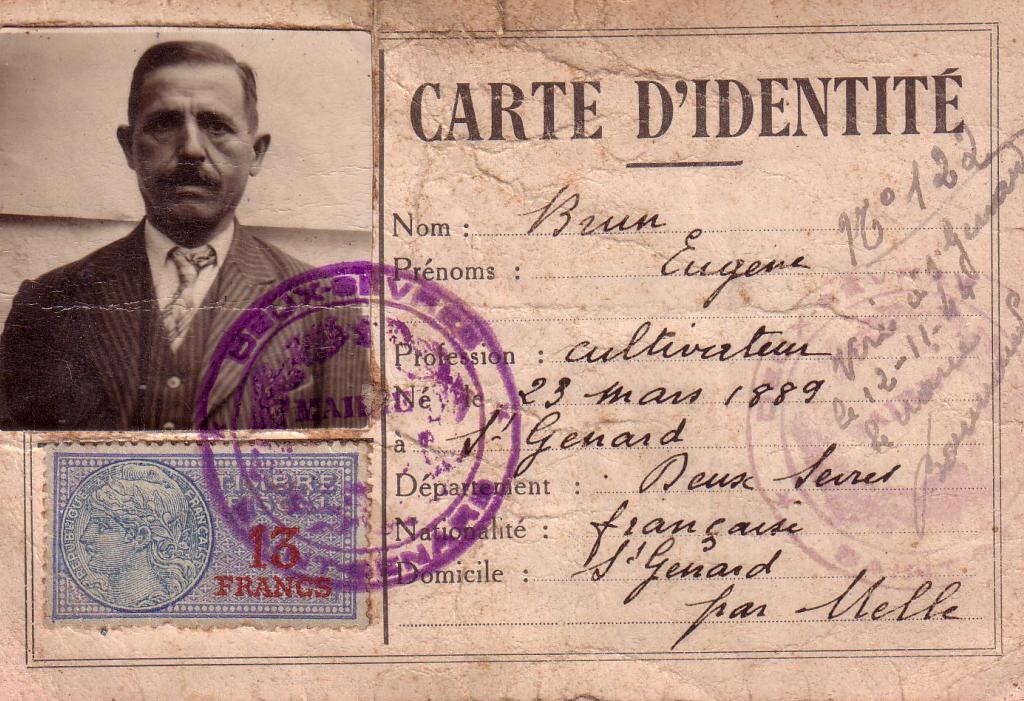 CARTE D'IDENTITÉ
Nom : Brun
Prénoms : Eugène
Profession : cultivateur
Né le 23 mars 1889
à St Genard
Département : Deux Sevres
Nationalité : française
Domicile : St Genard
par Melle
N° 122
Vérifié à St Genard
le 12-11-44
le Maire
DEUX-SEVRES
MAIRIE
RÉPUBLIQUE FRANÇAISE
TIMBRE
FISCAL
13
FRANCS